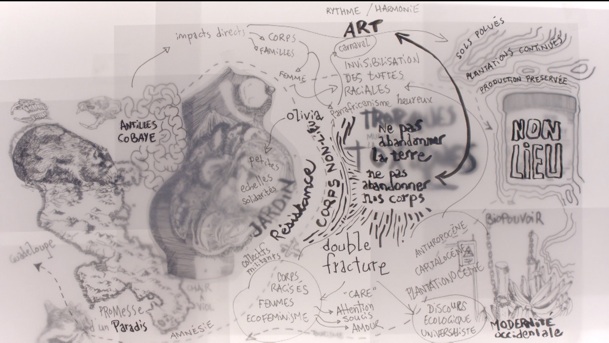 RYTHME / HARMONIE
ART
impacts directs
CORPS
FAMILLES
FEMME
carnaval
INVISIBILISATION
DES LUTTES
RACIALES
Panafricanisme heureux
SOLS POLLUÉS
PLANTATIONS CONTINUES
PRODUCTION PRÉSERVÉE
ANTILLES
COBAYE
olivia
petites
échelles
solidarités
JARDIN
Résistance
CORPS NON
ne pas
abandonner
la terre
ne pas
abandonner
nos corps
NON
LIEU
Guadeloupe
collectifs
militants
double
fracture
BIOPOUVOIR
ANTHROPOCÈNE
CAPITALOCÈNE
PLANTATIONOCÈNE
CORPS
RACISÉS
FEMMES
ECOFEMINISME
"CARE"
Attention
SOUCIS
AMOUR
DISCOURS
ÉCOLOGIQUE
UNIVERSALISTE
PROMESSE
d'un Paradis
AMNÉSIE
MODERNITÉ
occidentale